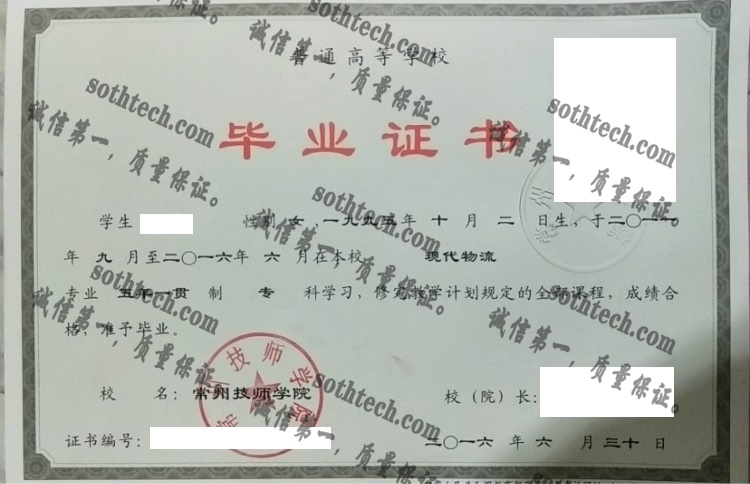 普通高等学校
毕业证书
学生 性别 女，一九九五年 十 月 二 日生，于二〇一一
年 九 月至二〇一六年 六 月在本校 现代物流
专业 五年一贯 制 专 科学习，修完教学计划规定的全部课程，成绩合
格，准予毕业。
校 名：常州技师学院
校（院）长：
证书编号：
二〇一六 年 六 月 三十 日
sothtech.com
诚信第一，质量保证。
sothtech.com
诚信第一，质量保证。
sothtech.com
诚信第一，质量保证。
sothtech.com
诚信第一，质量保证。
sothtech.com
诚信第一，质量保证。
sothtech.com
诚信第一，质量保证。
sothtech.com
诚信第一，质量保证。